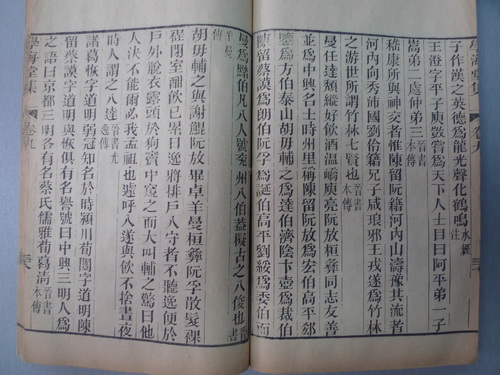 學海堂集 卷九
子作漢之英德爲龍光聲化鶴鳴水經注
王澄字平子庾敳嘗爲天下人士目曰阿平弟一子
嵩弟二處仲弟三晉書本傳
嵇康所與神交者惟陳留阮籍河內山濤豫其流者
河內向秀沛國劉伶籍兄子咸琅邪王戎遂爲竹林
之游世所謂竹林七賢也晉書本傳
曼任達穨縱好飲酒溫嶠庾亮阮放桓彝同志友善
並爲中興名士時州里稱陳留阮放爲宏伯高平郗
鑒爲方伯泰山胡毋輔之爲達伯濟陰卞壼爲裁伯
陳留蔡謨爲朗伯阮孚爲誕伯高平劉綏爲委伯而
曼爲䵬伯凡八人號兗州八伯蓋擬古之八俊也晉書
羊曼傳
胡毋輔之與謝鯤阮放畢卓羊曼桓彝阮孚散髮裸
裎閉室酣飲已累日逸將排戶入守者不聽逸便於
戶外脫衣露頭於狗竇中窺之而大叫輔之驚曰他
人決不能爾必我孟祖也遽呼入遂與飲不捨晝夜
時人謂之八達晉書光逸傳
諸葛恢字道明弱冠知名於時潁川荀闓字道明陳
留蔡謨字道明與恢俱有名譽號曰中興三明人爲
之語曰京都三明各有名蔡氏儒雅荀葛清晉書本傳
學海堂集 卷九